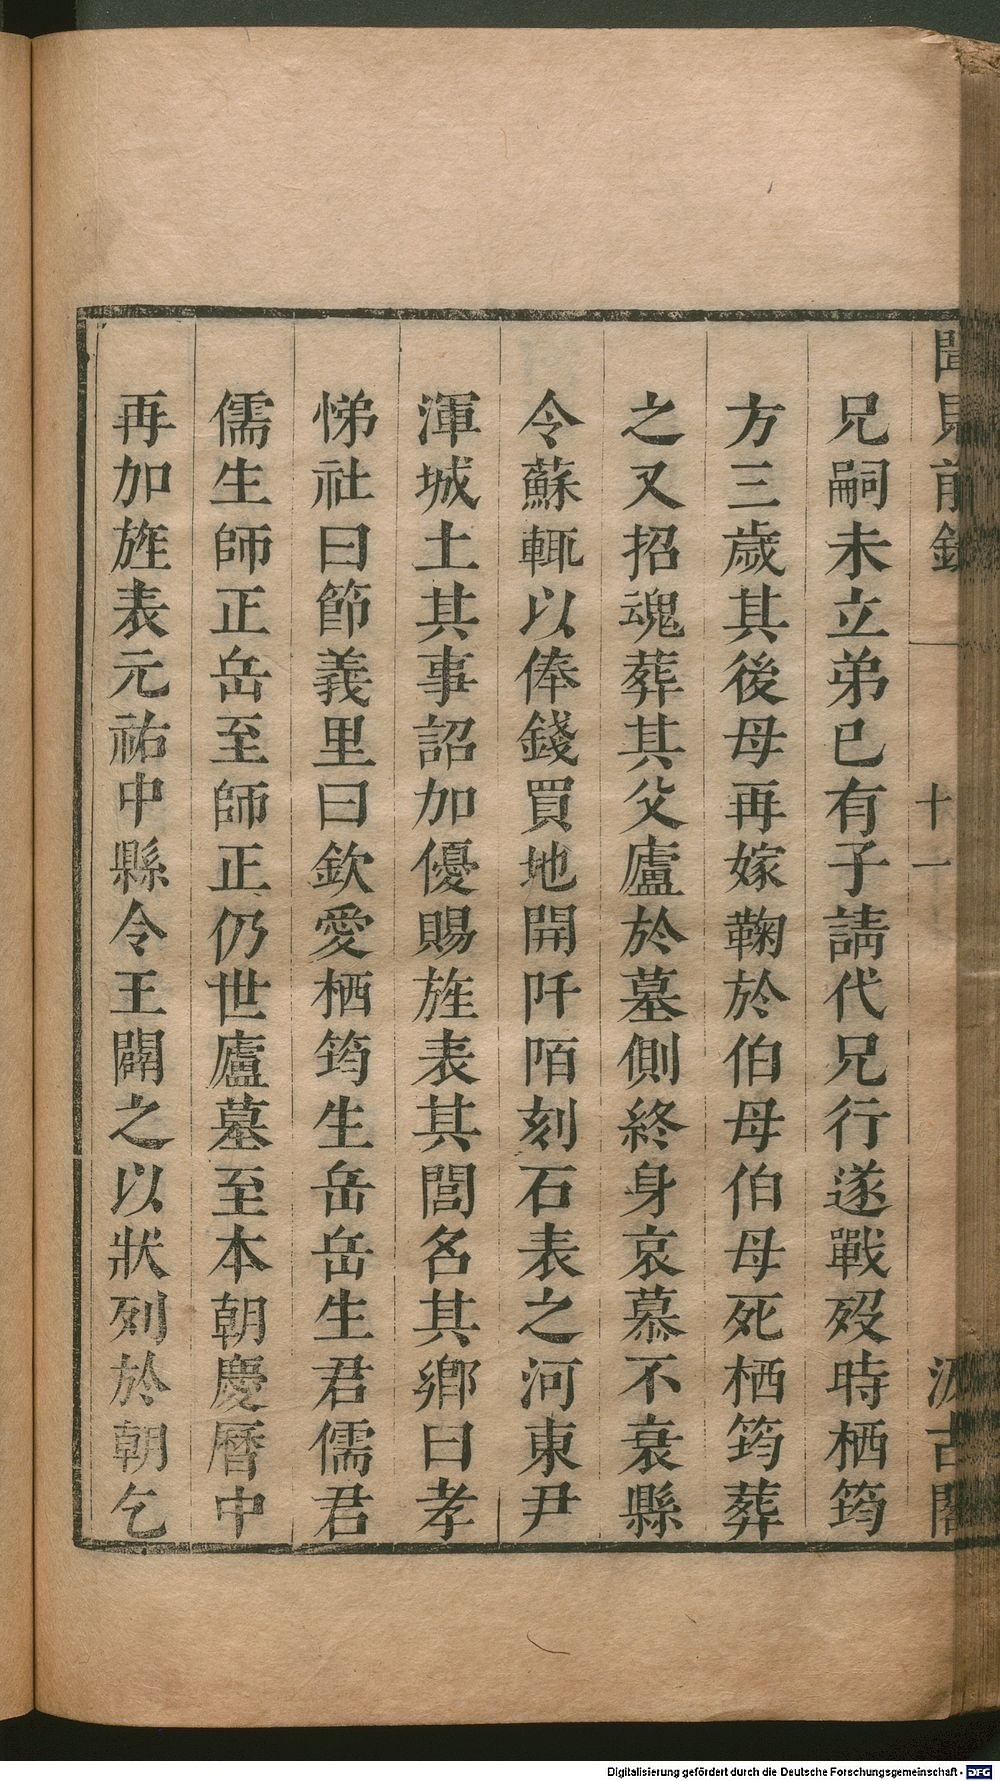 聞見前錄 十一 汲古閣
兄嗣未立弟已有子請代兄行遂戰歿時栖筠
方三歲其後母再嫁鞠於伯母伯母死栖筠葬
之又招魂葬其父廬於墓側終身哀慕不衰縣
令蘇輒以俸錢買地開阡陌刻石表之河東尹
渾城土其事詔加優賜旌表其閭名其鄉曰孝
悌社曰節義里曰欽愛栖筠生岳岳生君儒君
儒生師正岳至師正仍世廬墓至本朝慶曆中
再加旌表元祐中縣令王闢之以狀列於朝乞
Digitalisierung gefördert durch die Deutsche Forschungsgemeinschaft - DFG